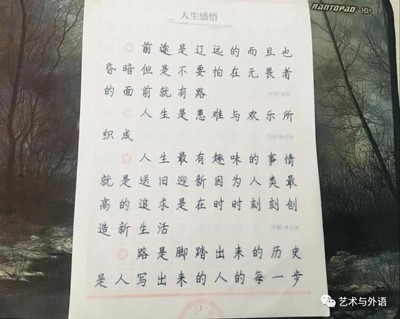 人生感悟
前途是辽远的而且也
昏暗但是不要怕在无畏者
的面前就有路
人生是患难与欢乐所
织成
人生最有趣味的事情
就是送旧迎新因为人类最
高的追求是在时时刻刻创
造新生活
路是脚踏出来的历史
是人写出来的人的每一步
RANTOPAD
艺术与外语